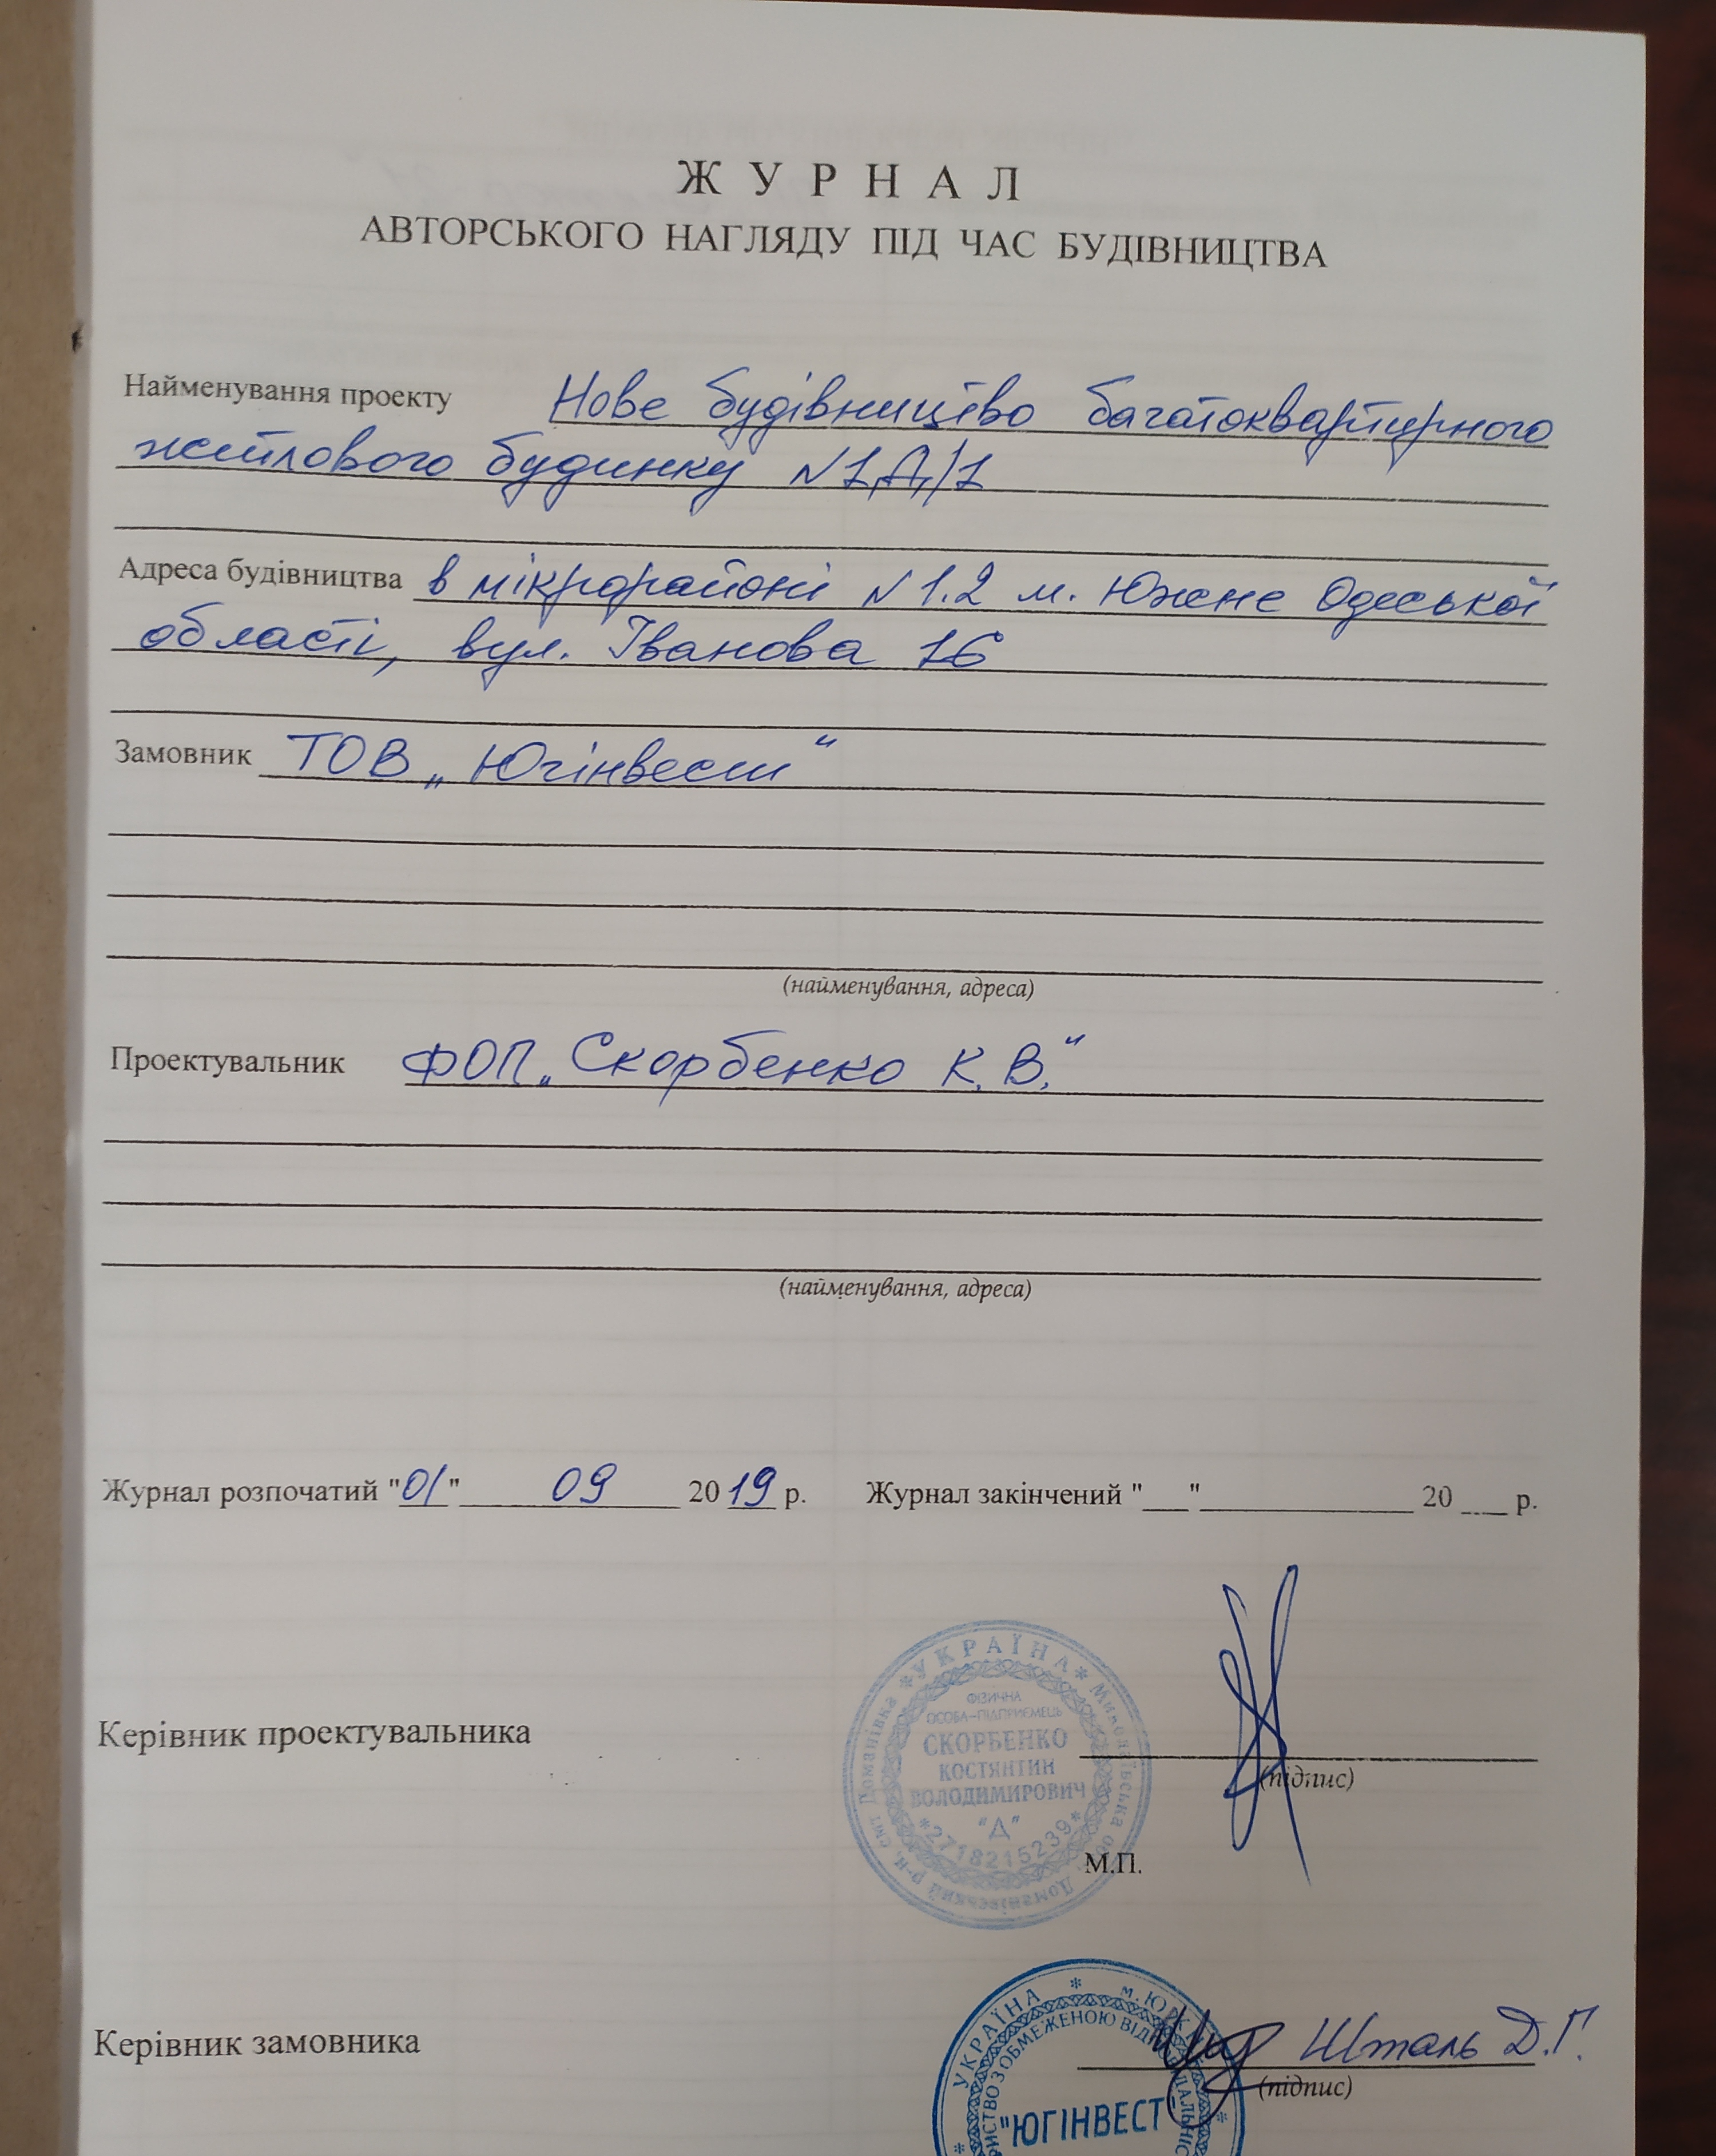 ЖУРНАЛ
АВТОРСЬКОГО НАГЛЯДУ ПІД ЧАС БУДІВНИЦТВА
Найменування проекту Нове будівництво багатоквартирного
житлового будинку №1Д/1
Адреса будівництва в мікрорайоні №1.2 м. Южне Одеської
області, вул. Іванова 16
Замовник ТОВ „Югінвест“
(найменування, адреса)
Проектувальник ФОП „Скорбенко К.В.“
(найменування, адреса)
Журнал розпочатий "01" 09 2019 р. Журнал закінчений "___" ___ 20 ___ р.
* УКРАЇНА * Миколаївська обл. Доманівський р-н, смт Доманівка
ФІЗИЧНА
ОСОБА-ПІДПРИЄМЕЦЬ
СКОРБЕНКО
КОСТЯНТИН
ВОЛОДИМИРОВИЧ
"Д"
*2718215239*
Керівник проектувальника
(підпис)
М.П.
Керівник замовника Шталь Д.Г.
(підпис)
* УКРАЇНА * м. Юж
ОБМЕЖЕНОЮ
"ЮГІНВЕСТ"